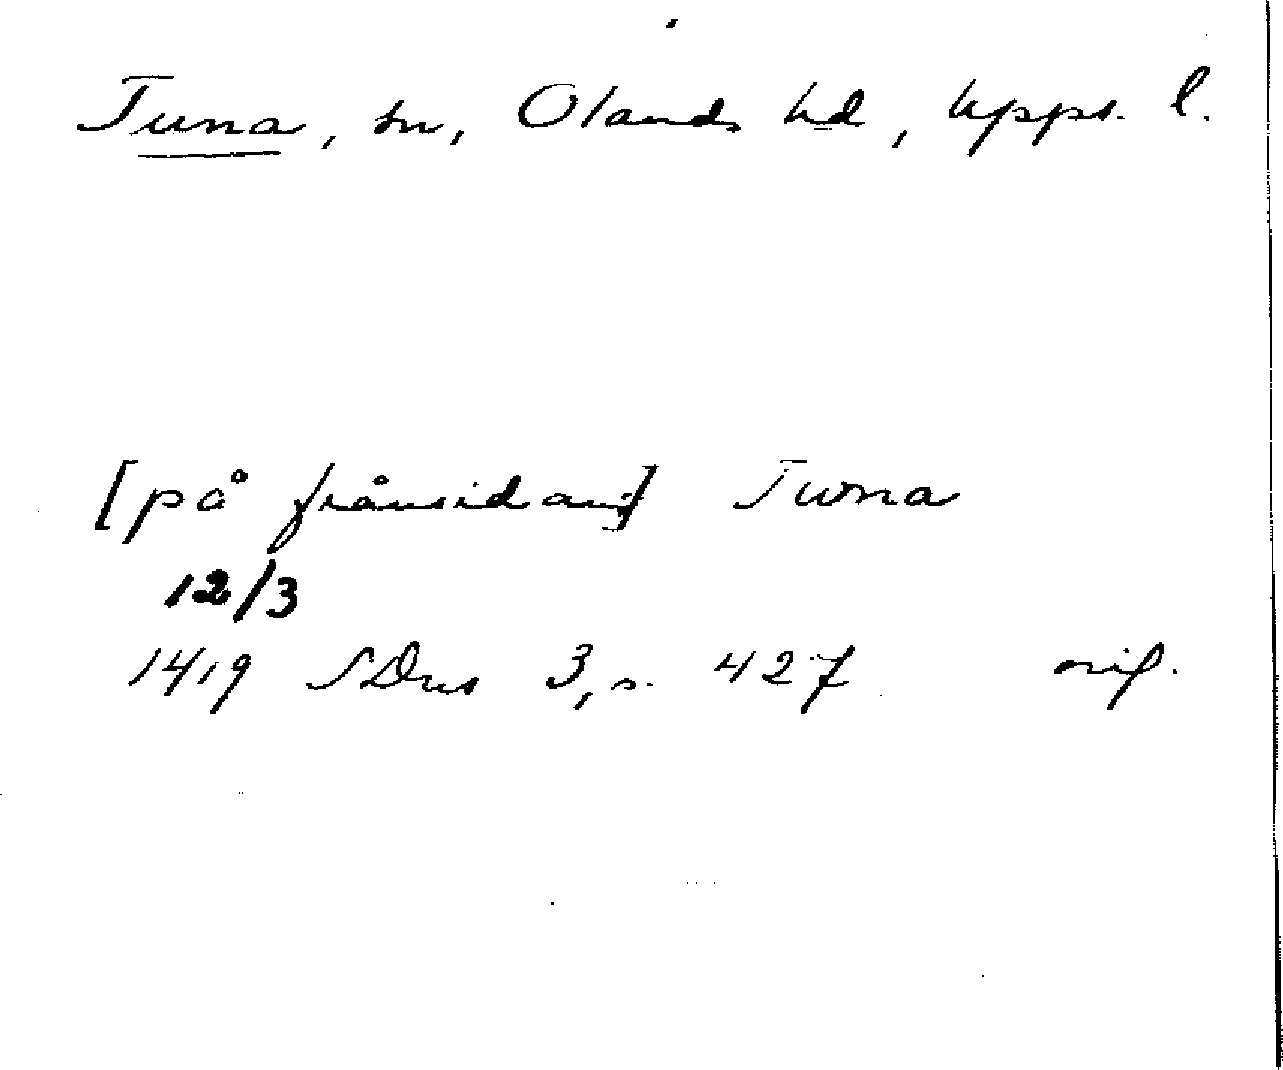 Tuna, sn, Olands hd, Upps. l.
[på frånsidan] Tuna
12/3
1419 SDns 3, s. 427 orig.